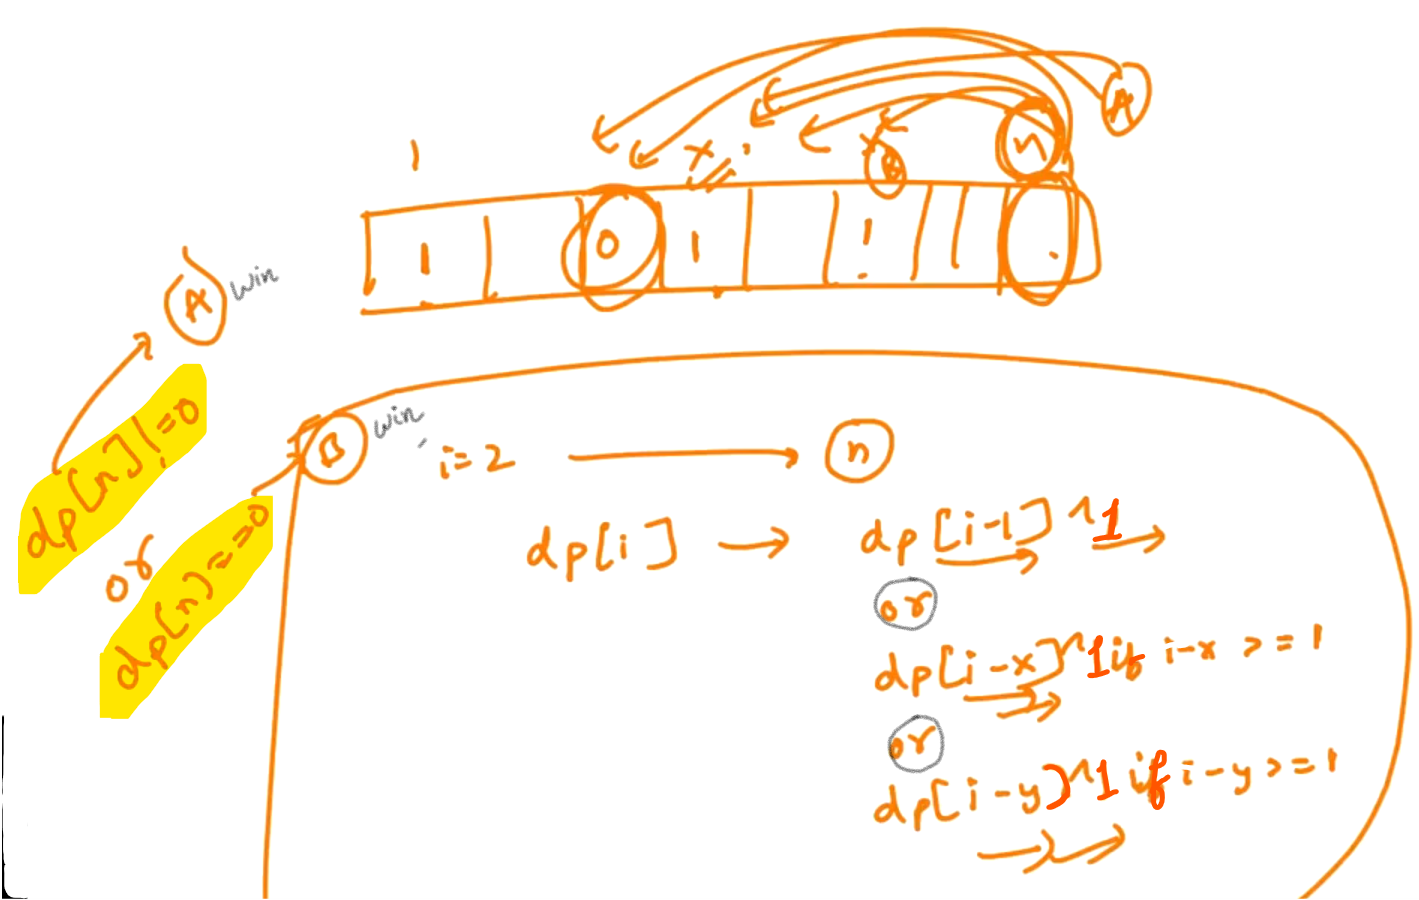 A
n
1
x
B
1 0 1 1
A win
dp[n]!=0
or
dp[n]==0
B win
i=2 n
dp[i] → dp[i-1]^1
or
dp[i-x]^1 if i-x >=1
or
dp[i-y)^1 if i-y >=1